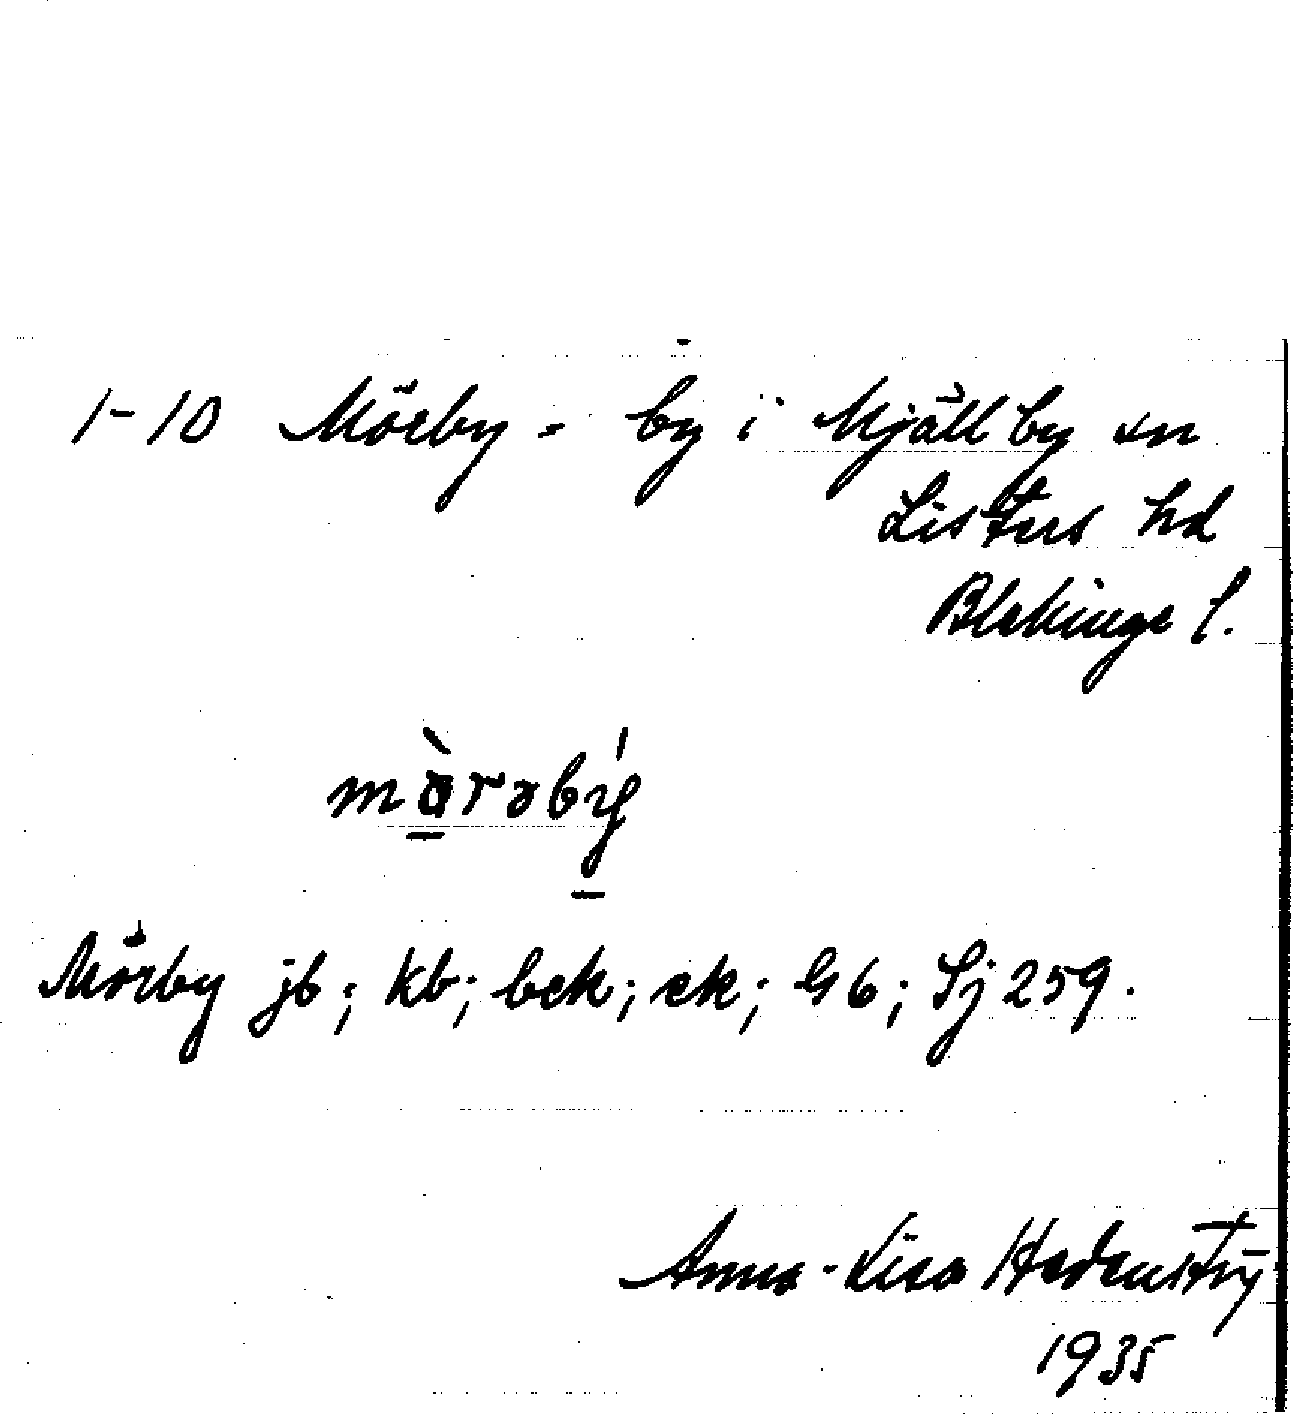 1-10 Mörby - by i Mjällby sn
Listers hd
Blekinge l.
mörəbý
Mörby jb; kb; bck; ck; G6; Sj 259.
Anna-Lisa
1935